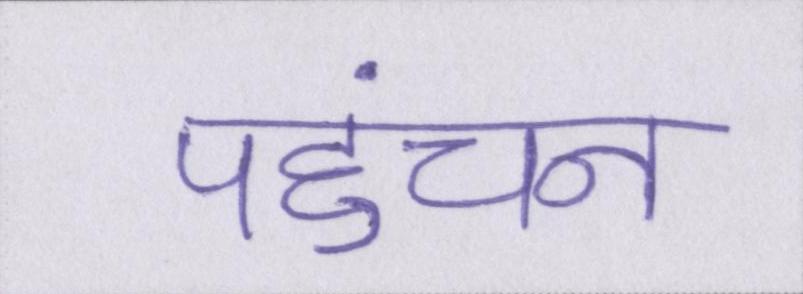 पहुंचन